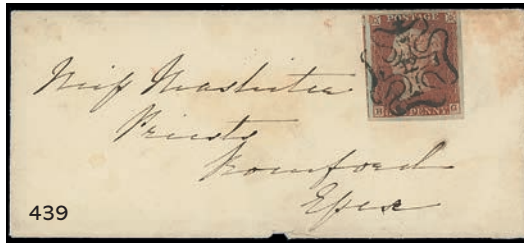 POSTAGE
PENNY
G
Miss Mashiter
Priests
Romford
Essex
439